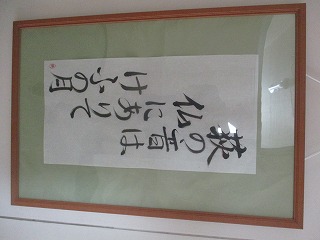 萩の音は
仏にありて
けふの月